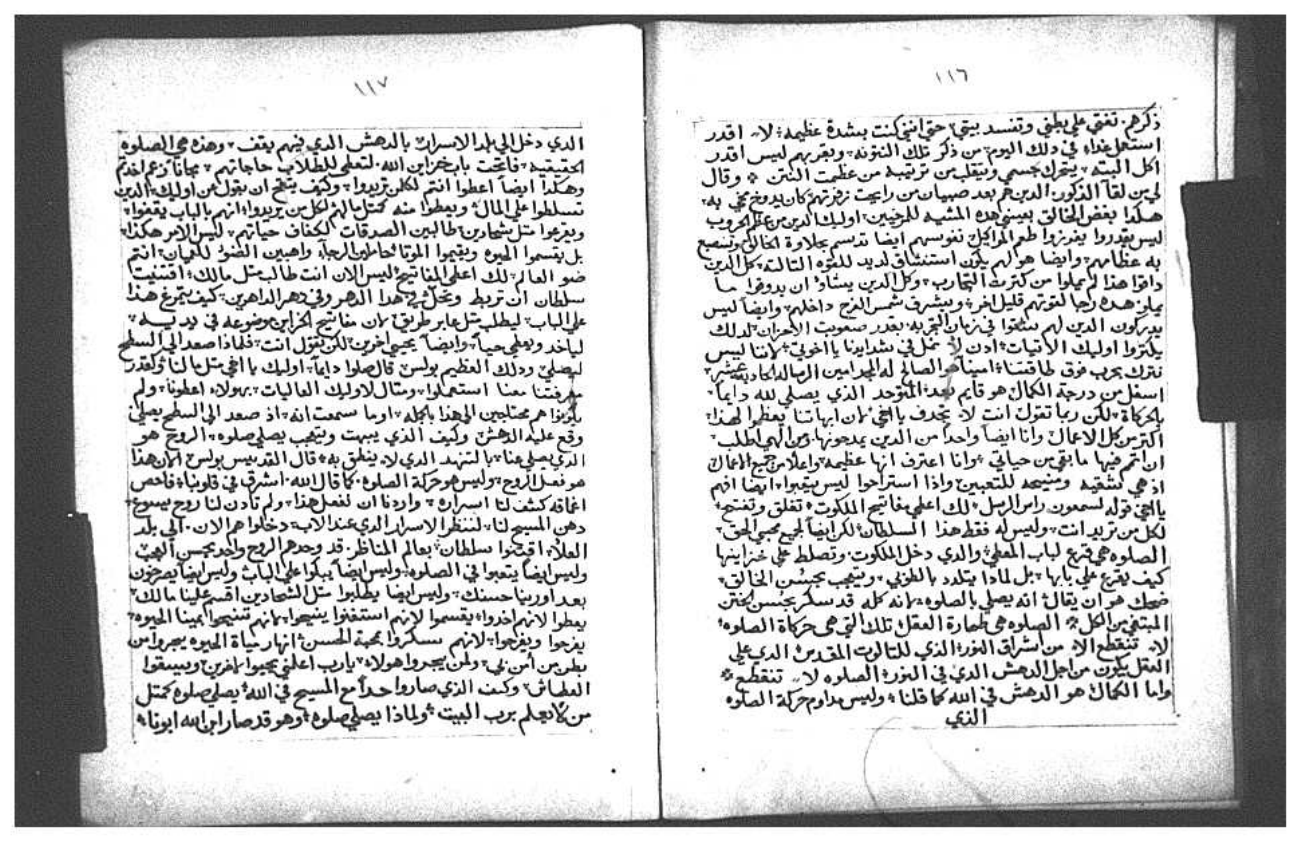 ١١٦
ذكرهم. تغتي علي بطني وتفسد بيتي، حتي انني كنت بشدة عظيمه، لا اقدر
استعمل غداء في دلك اليوم، من ذكر تلك النتونه، وبقربهم ليس اقدر
اكل البته، يتحرك جسمي وينقلب من ترتيبه من عظمت النتن، وقال
لي من لقا الذكور، الدين هم بعد صبيان من رايحت زفرتهم كان يدوخ مخي به،
هكدا بغض الخالق بيسبي هذه المشيه للرضيين، اوليك الدين من عظم الحروب
ليس يقدروا يفرزوا طعم المواكيل، نفوسهم ايضا تدسم بحلاوة الخالق وتشبع
به عظامهم، وايضا هو لهم يكون استنشاق لديد للقوه التالته، كل الدين
داقوا هذا لم يملوا من كترت التجارب، وكل الدين يشاو ان يدوقوا ما
يملو، هده رجا لقوتهم قليل اخر، ويشرق شمس الفرح داخلهم، وايضا ليس
يدركون الدين لهم سقوا في زمان التجربه، بقدر صعوبت الاحزان، لدلك
يكتروا اوليك الاتيات، ادن لا نمل في شدايدنا يا اخوتي، لاننا ليس
نترك نجرب فوق طاقتنا، امين، هو الصالح له المجد امين الرساله الحاديه عشر،
اسفل من درجة الكمال هو قايم بعد، المتوحد الذي يصلي لله دايماً،
بالحركاة، لكن ربما تقول انت لا تجدف يا اخي، لان ابهاتنا يعظموا لهذا،
اكتر من كل الاعمال وانا ايضاً واحداً من الدين يمدحونها، ومن الهي اطلب،
ان اتم فيها ما بقي من حياتي، وانا اعترف انها عظيمه، واعلا من جميع الاعمال
اذ هي لشقيه ومنيحه للتعبين، واذا استراحوا ليس يتعبوا، ايضا افهم
يا اخي قوله لسمعون راس الرسل، لك اعطي مفاتيح الملكوت، تغلق وتفتح،
لكل من تريد انت، وليس له فقط هذا السلطان، لكن ايضاً لجميع محبي الحق،
الصلوه هي قرع لباب المعطي، والدي دخل الملكوت، وتصلط علي خزاينها
كيف يقرع علي بابها، بل لماذا يتلدد بالطوبي، ويتعجب بحُسن الخالق،
ضحك هو ان يقال، انه يصلي بالصلوه، لانه كله قد سكر بحُسن الختن
المبتغي من الكل، الصلوه هي طهارة العقل، تلك التي هي حركاة الصلوه،
لا تنقطع الا من اشراق النور، الذي للتالوت المقدس، الدي علي
العقل يكون من اجل الدهش الدي في النور، الصلوه لا تنقطع،
واما الكمال هو الدهش في الله كما قلنا، وليس مداوم حركة الصلوه
الذي
١١٧
الدي دخل الي بلد الاسرار، بالدهش الدي فيهم يقف، وهذه هي الصلوه
الحقيقيه، فاتحت باب خزاين الله، لتعطي للطلاب حاجاتهم، مجانا زعم اخدتم
وهكدا ايضاً اعطوا انتم لكلمن تريدوا، وكيف يتجه ان يقول عن اوليك، الدين
تسلطوا علي المال، ويعطوا منه كمتل مالهم لكل من يريدوا، انهم بالباب يقفوا،
ويقرعوا متل شحادين، طالبين الصدقات لكفاف حياتهم، ليس الامر هكذا،
بل يقسموا الحيوه ويقيموا الموتا، حاملين الرجاء، واهبين الضو للعميان، انتم
ضو العالم، لك اعطي المفاتيح، ليس الان انت طالب متل مالك، اقتنيت
سلطان ان تربط وتحل، في هدا الدهر وفي دهر الداهرين، كيف يتمرغ هذا
علي الباب، ليطلب متل عابر طريق، لان مفاتيح الخزاين موضوعه في يديه،
لياخد ويعطي حياً، وايضاً يحيي اخرين، لكن تقول انت، فلماذا صعد الي السطح
ليصلي، ودلك العظيم بولس، قال صلوا دايماً، اوليك يا اخي متل ما لنا ولقدر
معرفتنا معنا استعملوا، ومتال لاوليك العاليات، بهولاء اعطونا، ولم
يكونوا هم محتاجين الي هذا بالجمله، اوما سمعت انه، اذ صعد الي السطح يصلي
وقع عليه الدهش، وكيف الذي يبهت ويتعجب يصلي صلوه، الروح هو
الدي يصلي عنا، بالتنهد الدي لا ينطق به، قال القديس بولس، الان هذا
هو فعل الروح، وليس هو حركة الصلوه، كما قال الله، اشرق في قلوبنا، فاحص
اعماقه كشف لنا اسراره، واردنا ان نفعل هذا، ولم تأدن لنا روح يسوع،
دهن المسيح لنا، لننظر الاسرار الدي عند الاب، دخلوا هم الان، الي بلد
العلا، اقتنوا سلطان، بعالم المناظر، قد وحدهم الروح واحد بحسن الهيب
وليس ايضاً يتعبوا في الصلوه، وليس ايضاً يبكوا علي الباب، وليس ايضا يصرخون
بعد اورينا حسنك، وليس ايضا يطلبوا متل الشحادين، اقسم علينا مالك،
يعطوا لانهم اخدوا، يقسموا لانهم استغنوا، ينيحوا، لانهم تنيحوا بمينا الحيوه،
يفرحوا ويفرحوا، لانهم سكروا بمحبة الحسن، انهار حياة الحيوه يجروا من
بطن من امن بي، ولمن يجروا هولاء، يا رب اعلمني يحيوا لاخرين، ويسقوا
العطاش، وكيف الذي صاروا احداً مع المسيح في الله، يصلي صلوه كمتل
من لا يعلم برب البيت، ولماذا يصلي صلوه، وهو قد صار ابن الله ابونا،